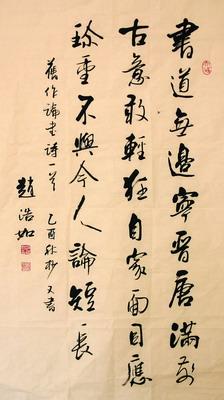 書道無邊寧晉唐滿前
古意敢輕狂自家面目應
珍重不與今人論短長
舊作論書詩一首 乙酉秋杪又書
趙浩如